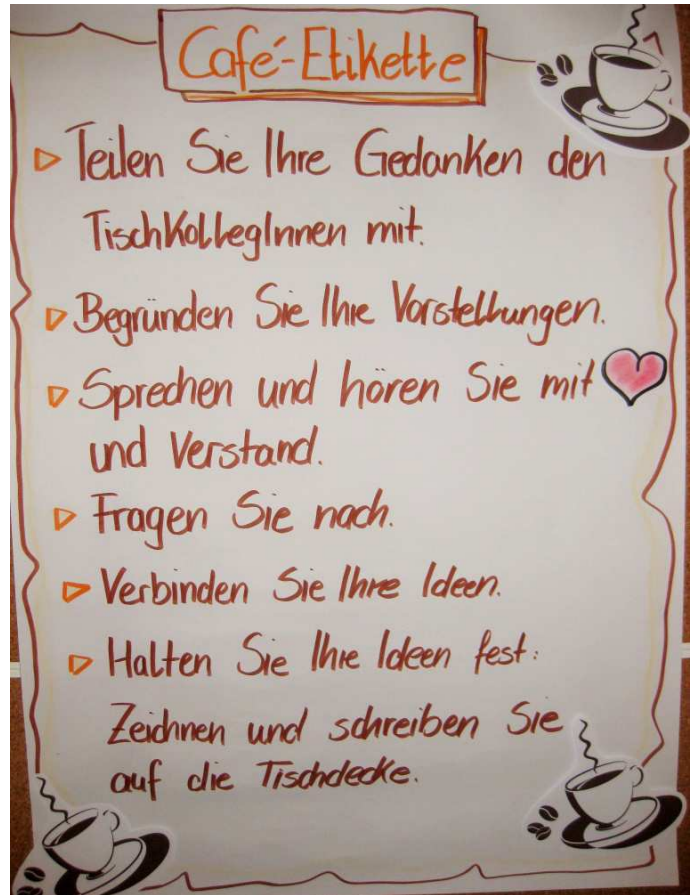 Café-Etikette
Teilen Sie Ihre Gedanken den
TischKollegInnen mit.
Begründen Sie Ihre Vorstellungen.
Sprechen und hören Sie mit
und Verstand.
Fragen Sie nach.
Verbinden Sie Ihre Ideen.
Halten Sie Ihre Ideen fest:
Zeichnen und schreiben Sie
auf die Tischdecke.